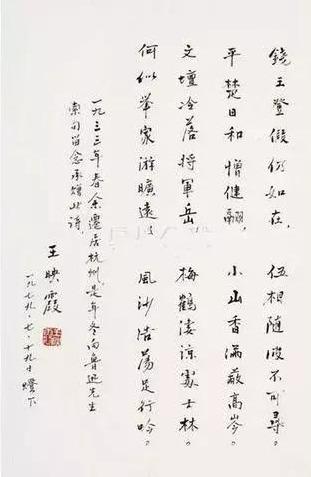 錢王登假仍如在，伍相隨波不可尋。
平楚日和憎健翮，小山香滿蔽高岑。
文壇冷落將軍岳，梅鶴淒涼處士林。
何似舉家游曠遠，風沙浩蕩足行吟。
一九三三年春余遷居杭州，是年冬向魯迅先生
索句留念承贈此詩，
王映霞
一九七九·七·十九日燈下